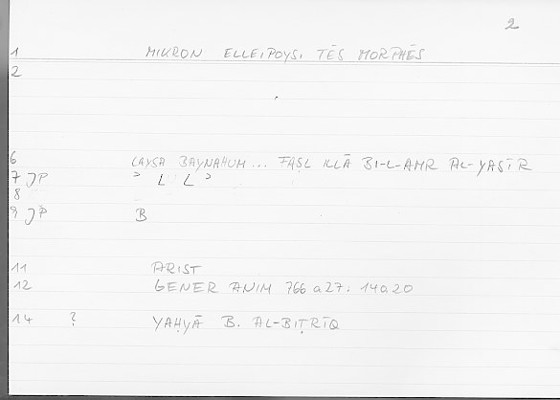 2
1 MIKRON ELLEIPOYSI TĒS MORPHĒS
2
6 LAYSA BAYNAHUM... FAṢL ILLĀ BI-L-AMR AL-YASĪR
7 JP ' L L '
8
9 JP B
11 ARIST
12 GENER ANIM 766 a 27: 140 20
14 ? YAḤYĀ B. AL-BIṬRĪQ